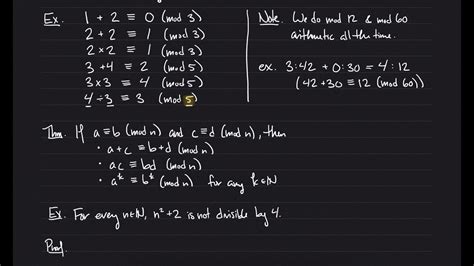 Ex. 1 + 2 ≡ 0 (mod 3)
2 + 2 ≡ 1 (mod 3)
2 × 2 ≡ 1 (mod 3)
3 + 4 ≡ 2 (mod 5)
3 × 3 ≡ 4 (mod 5)
4 ÷ 3 ≡ 3 (mod 5)
Note. We do mod 12 & mod 60
arithmetic all the time.
ex. 3:42 + 0:30 = 4:12
(42 + 30 ≡ 12 (mod 60))
Thm. If a ≡ b (mod n) and c ≡ d (mod n), then
• a + c ≡ b + d (mod n)
• ac ≡ bd (mod n)
• a^k ≡ b^k (mod n) for any k ∈ ℕ
Ex. For every n ∈ ℕ, n² + 2 is not divisible by 4.
Proof.